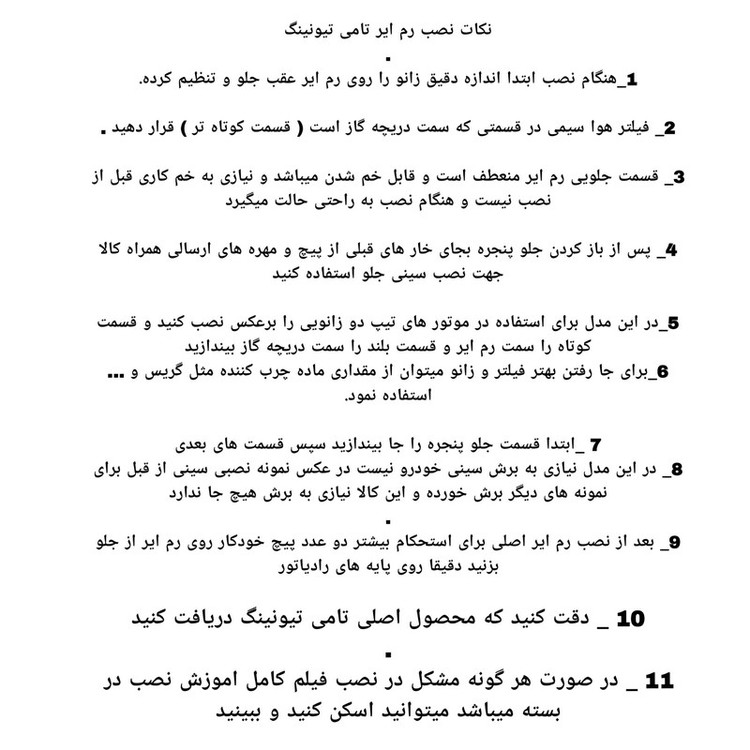 نکات نصب رم ایر تامی تیونینگ
.
1_هنگام نصب ابتدا اندازه دقیق زانو را روی رم ایر عقب جلو و تنظیم کرده.
2_ فیلتر هوا سیمی در قسمتی که سمت دریچه گاز است ( قسمت کوتاه تر ) قرار دهید .
3_ قسمت جلویی رم ایر منعطف است و قابل خم شدن میباشد و نیازی به خم کاری قبل از
نصب نیست و هنگام نصب به راحتی حالت میگیرد
4_ پس از باز کردن جلو پنجره بجای خار های قبلی از پیچ و مهره های ارسالی همراه کالا
جهت نصب سینی جلو استفاده کنید
5_در این مدل برای استفاده در موتور های تیپ دو زانویی را برعکس نصب کنید و قسمت
کوتاه را سمت رم ایر و قسمت بلند را سمت دریچه گاز بیندازید
6_برای جا رفتن بهتر فیلتر و زانو میتوان از مقداری ماده چرب کننده مثل گریس و ...
استفاده نمود.
7 _ابتدا قسمت جلو پنجره را جا بیندازید سپس قسمت های بعدی
8_ در این مدل نیازی به برش سینی خودرو نیست در عکس نمونه نصبی سینی از قبل برای
نمونه های دیگر برش خورده و این کالا نیازی به برش هیچ جا ندارد
.
9_ بعد از نصب رم ایر اصلی برای استحکام بیشتر دو عدد پیچ خودکار روی رم ایر از جلو
بزنید دقیقا روی پایه های رادیاتور
10 _ دقت کنید که محصول اصلی تامی تیونینگ دریافت کنید
.
11 _ در صورت هر گونه مشکل در نصب فیلم کامل اموزش نصب در
بسته میباشد میتوانید اسکن کنید و ببینید